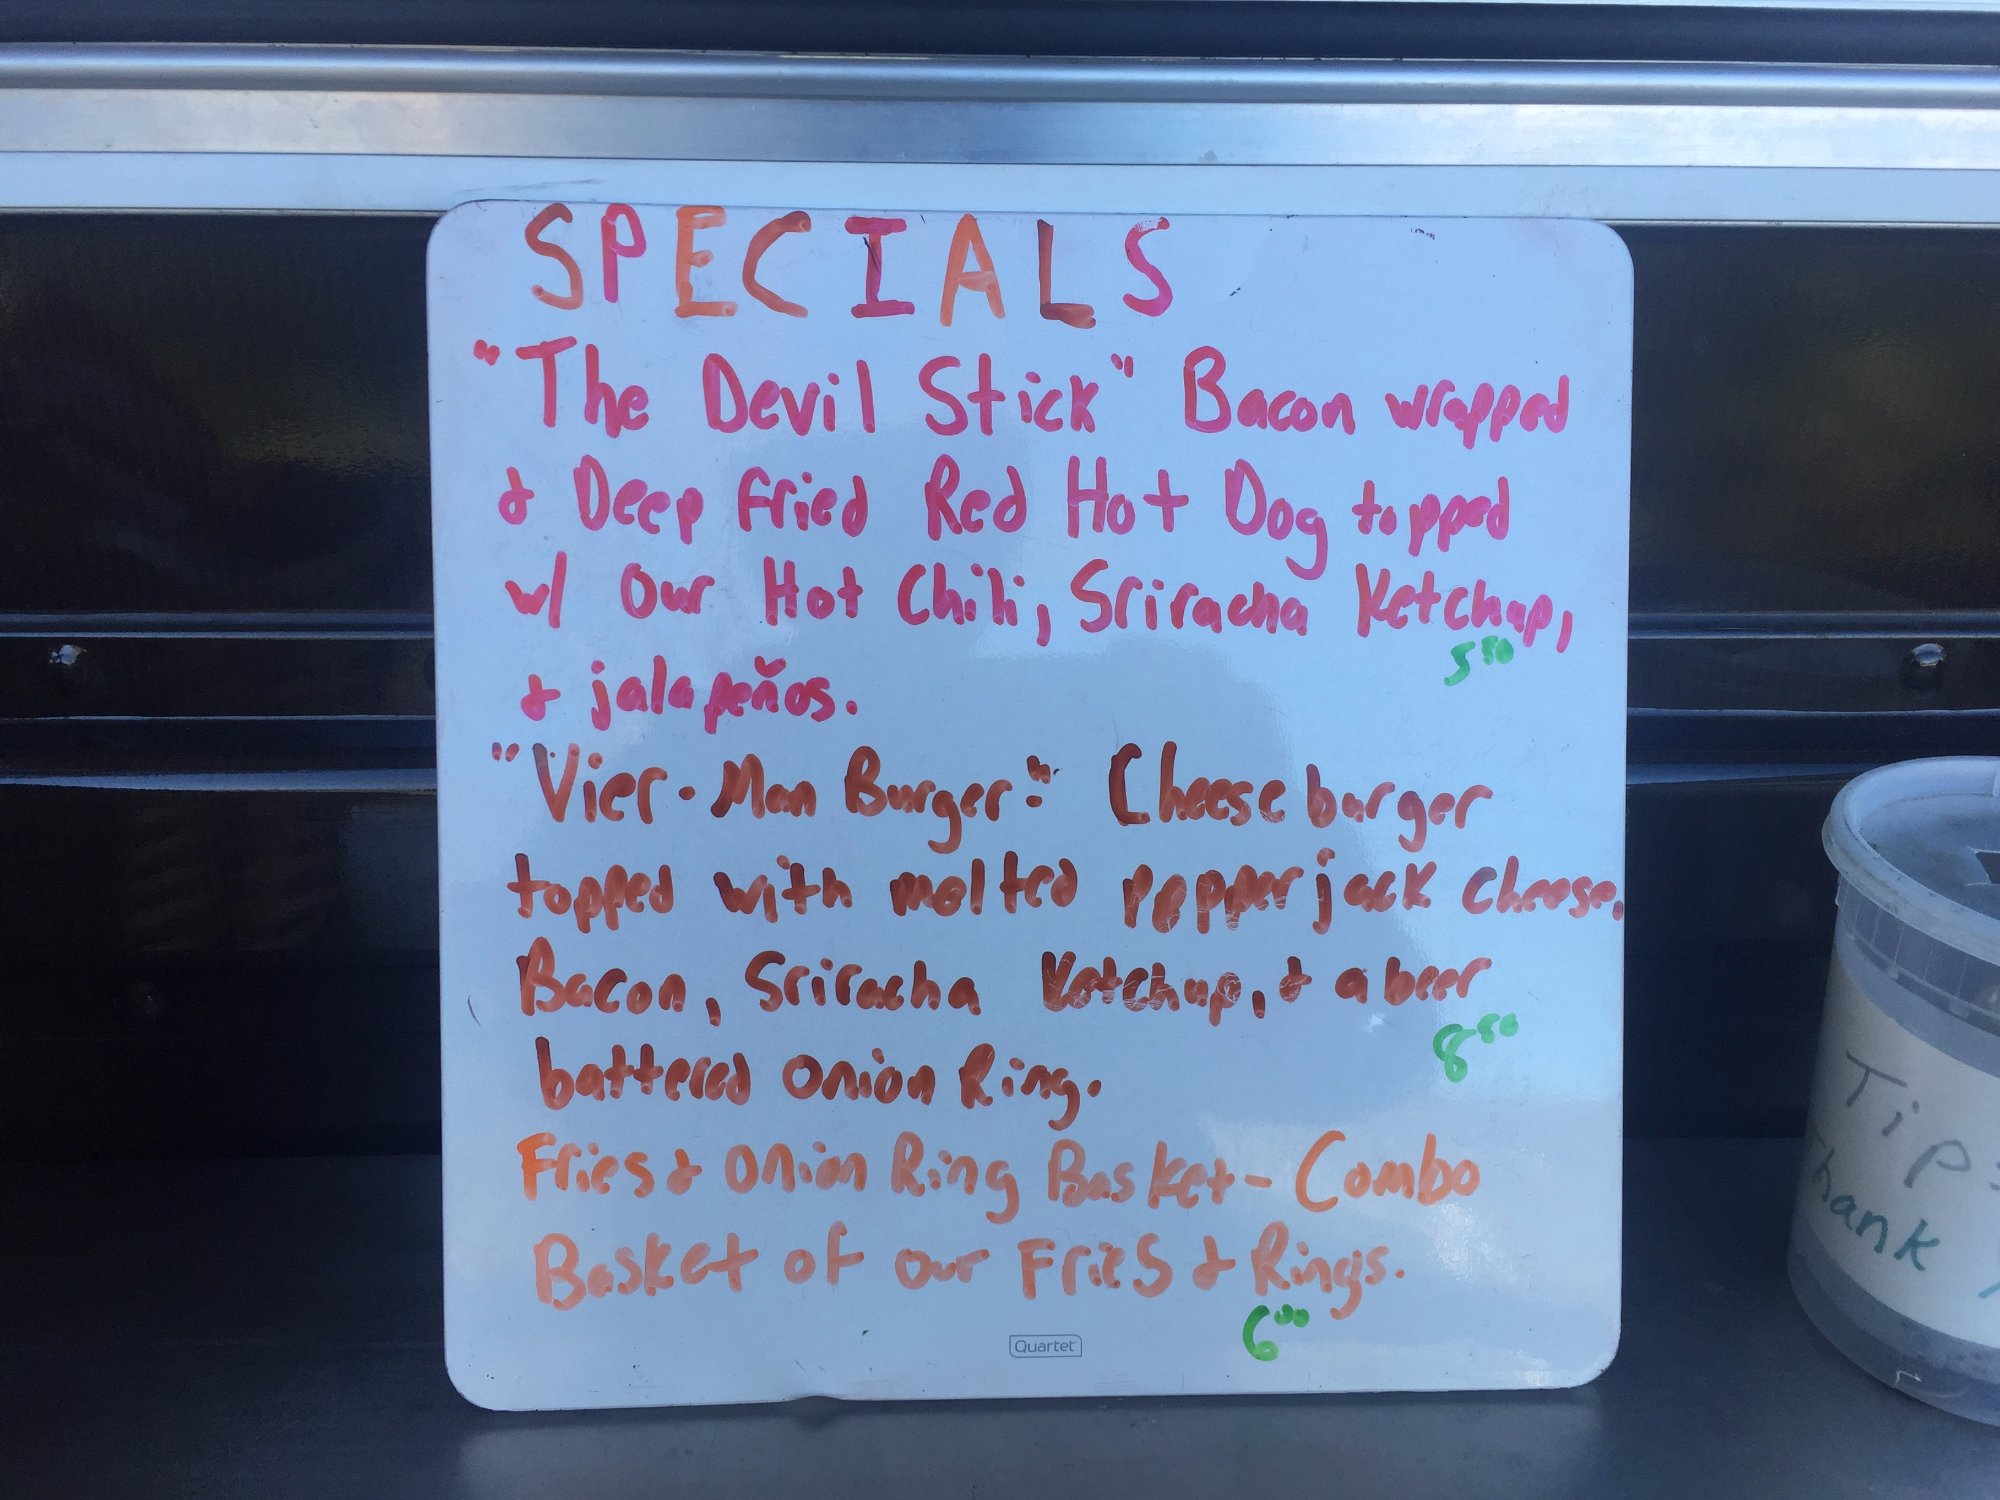 SPECIALS
"The Devil Stick" Bacon wrapped
& Deep Fried Red Hot Dog topped
w/ Our Hot Chili, Sriracha Ketchup,
& jalapeños.
5 50
"Vier-Man Burger:" Cheeseburger
topped with melted pepperjack cheese,
Bacon, Sriracha Ketchup, & a beer
battered onion Ring.
8 50
Fries & Onion Ring Basket - Combo
Basket of our Fries & Rings.
6 00
Quartet
Tips
Thank